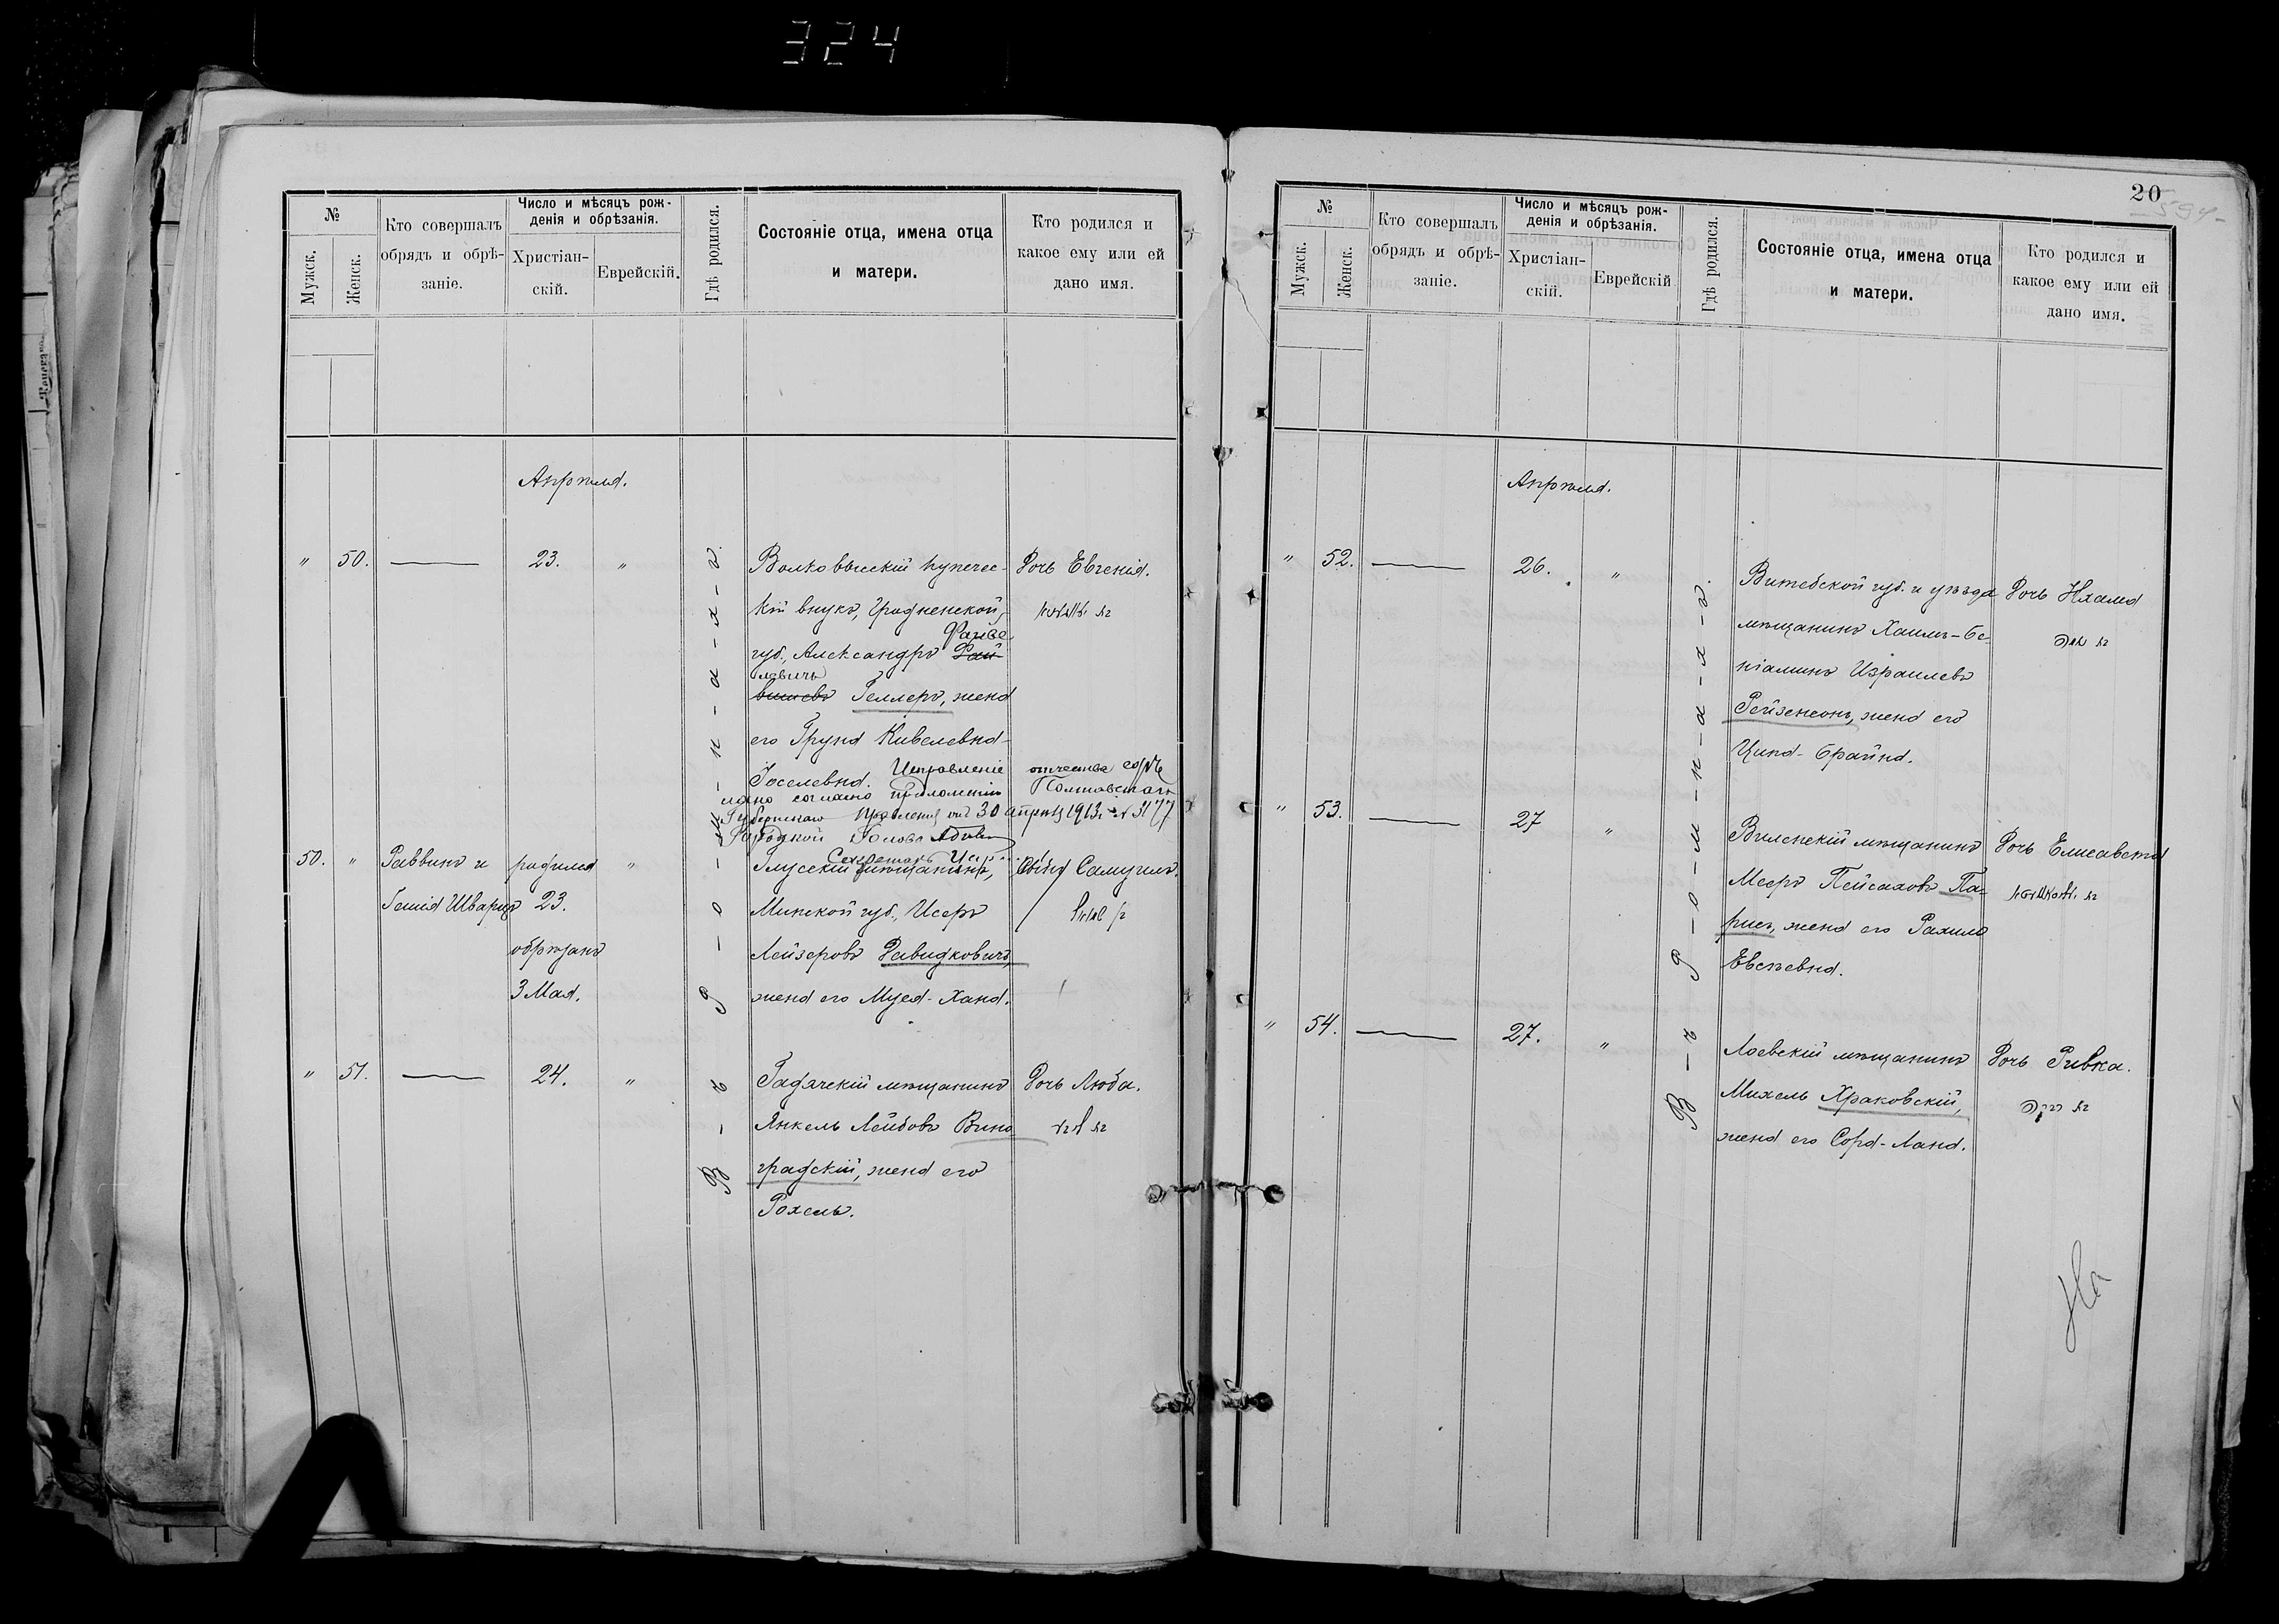 324
№
Мужск.
Женск.
Кто совершалъ
обрядъ и обрѣ-
заніе.
Число и мѣсяцъ рож-
денія и обрѣзанія.
Христіан-
скій.
Еврейскій.
Гдѣ родился.
Состояніе отца, имена отца
и матери.
Кто родился и
какое ему или ей
дано имя.
Апрѣля.
В-ъ Р-о-м-н-а-х-ъ.
" 50. — 23. "
Волковысскій купечес-
кій внукъ, Гродненской
Файве
губ., Александръ Фай-
левичъ
вишевъ Геллеръ, жена
его Груна Кивелевна-
Іоселевна.
Дочь Евгенія.
Исправленіе отчества
согласно предложенію Полтавскаго
Губернскаго Правленія отъ 30 апрѣля 1913 г. № 3177
Городской Голова
Секретарь
50. " Раввинъ и
Гешія Шварцъ
родился
23.
обрѣзанъ
3 Мая.
"
Глусскій мѣщанинъ,
Минской губ., Исеръ
Лейзеровъ Давидковичъ,
жена его Муся-Хана.
Сынъ Самуилъ.
" 51. — 24. "
Гадячскій мѣщанинъ
Янкель Лейбовъ Вино
градскій, жена его
Рохель.
Дочь Люба.
20
№
Мужск.
Женск.
Кто совершалъ
обрядъ и обрѣ-
заніе.
Число и мѣсяцъ рож-
денія и обрѣзанія.
Христіан-
скій.
Еврейскій
Гдѣ родился.
Состояніе отца, имена отца
и матери.
Кто родился и
какое ему или ей
дано имя.
Апрѣля.
В-ъ Р-о-м-н-а-х-ъ.
" 52. — 26. "
Витебской губ. и уѣзда
мѣщанинъ Хаимъ-Бе-
ніаминъ Израилевъ
Рейзенсонъ, жена его
Ципа-Брайна.
Дочь Нхама
" 53. — 27 "
Виленскій мѣщанинъ
Мееръ Пейсаховъ Па-
рисъ, жена его Рахиль
Евсѣевна.
Дочь Елисавета
" 54. — 27. "
Лоевскій мѣщанинъ
Михель Храковскій,
жена его Сора-Лана.
Дочь Ривка.
רבקה
На